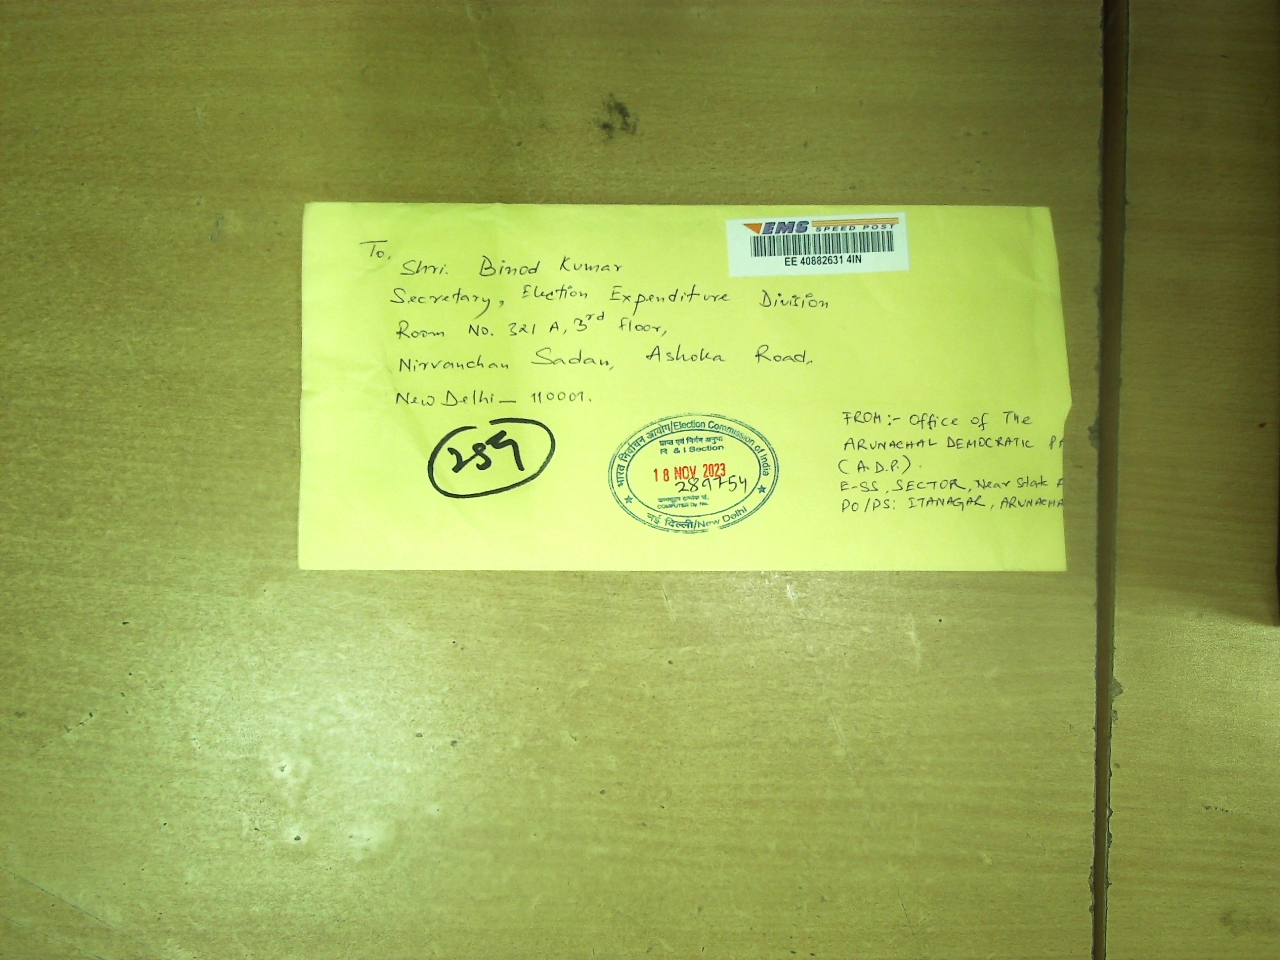 EMS SPEED POST
EE 40882631 4IN
To,
Shri. Binod Kumar
Secretary, Election Expenditure Division
Room No. 321 A, 3rd floor,
Nirvanchan Sadan, Ashoka Road,
New Delhi - 110001.
289
भारत निर्वाचन आयोग/Election Commission of India
प्राप्त एवं निर्गम अनुभाग
R & I Section
18 NOV 2023
289754
COMPUTER Dy No.
नई दिल्ली/New Delhi
FROM :- Office of The
ARUNACHAL DEMOCRATIC PA
(A.D.P.).
E-SS, SECTOR, Near State
PO/PS: ITANAGAR, ARUNACHA